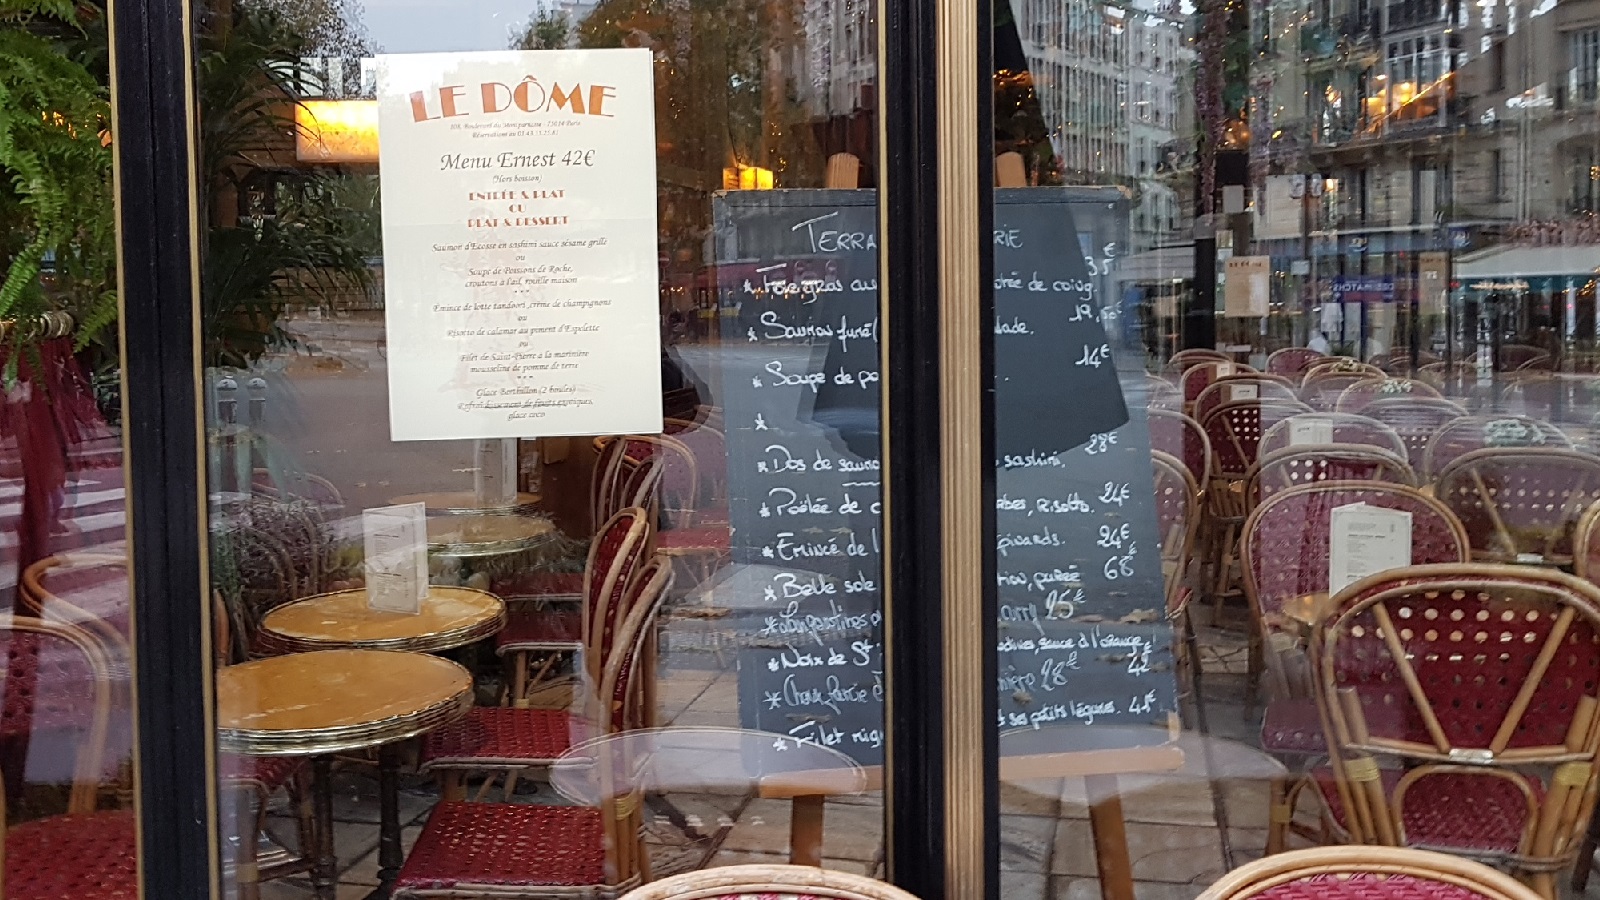 LE DÔME
108, Boulevard du Montparnasse - 75014 Paris
Réservations au 01 43 35 25 81
Menu Ernest 42€
(Hors boisson)
ENTRÉE & PLAT
OU
PLAT & DESSERT
Saumon d'Ecosse en sashimi sauce sésame grillé
ou
Soupe de Poissons de Roche,
croutons à l'ail, rouille maison
***
Emincé de lotte tandoori, crème de champignons
ou
Risotto de calamar au piment d'Espelette
ou
Filet de Saint-Pierre à la marinière
mousseline de pomme de terre
***
Glace Berthillon (2 boules)
Rafraîchissement de fruits exotiques,
glace coco
TERRA RIE
* Foie gras au de coing. 35€
* Saumon fumé lade. 19,50€
* Soupe de po . 14€
*
* Dos de saumo sashimi. 28€
* Poêlée de c rbes, risotto. 24€
* Émincé de l pinards. 24€
* Belle sole purée 68€
* Langoustines curry 25€
* Noix de St sauce à l'orange. 42€
28€
* Filet mig t ses petits légumes. 41€
LE DÔME